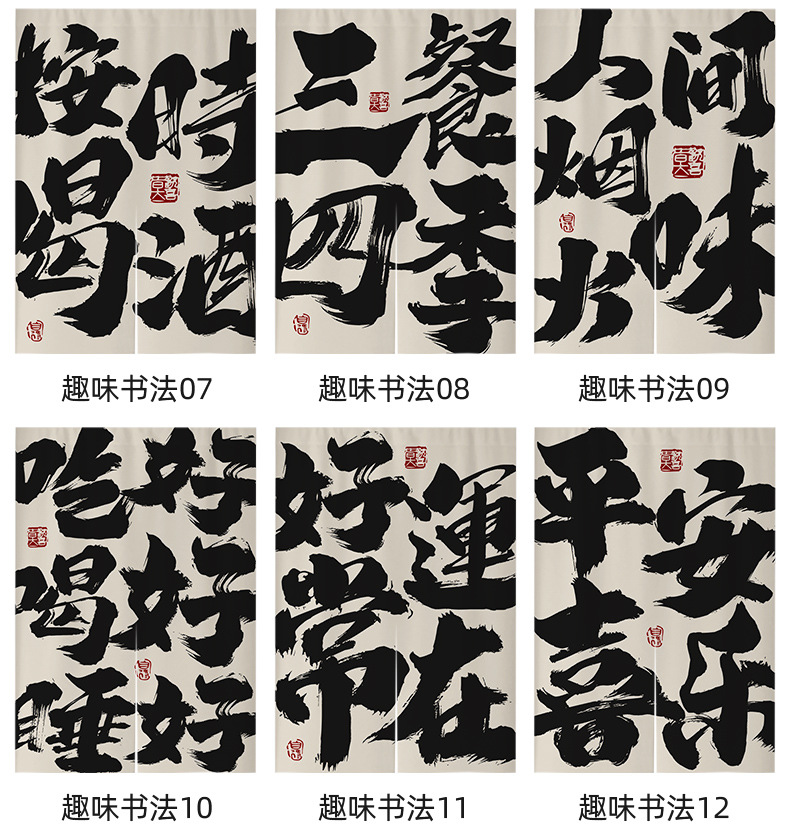 按時
喝酒
趣味书法07
三餐
四季
趣味书法08
人间
烟火
味
趣味书法09
吃好
喝好
睡好
趣味书法10
好運
常在
趣味书法11
平安
喜乐
趣味书法12